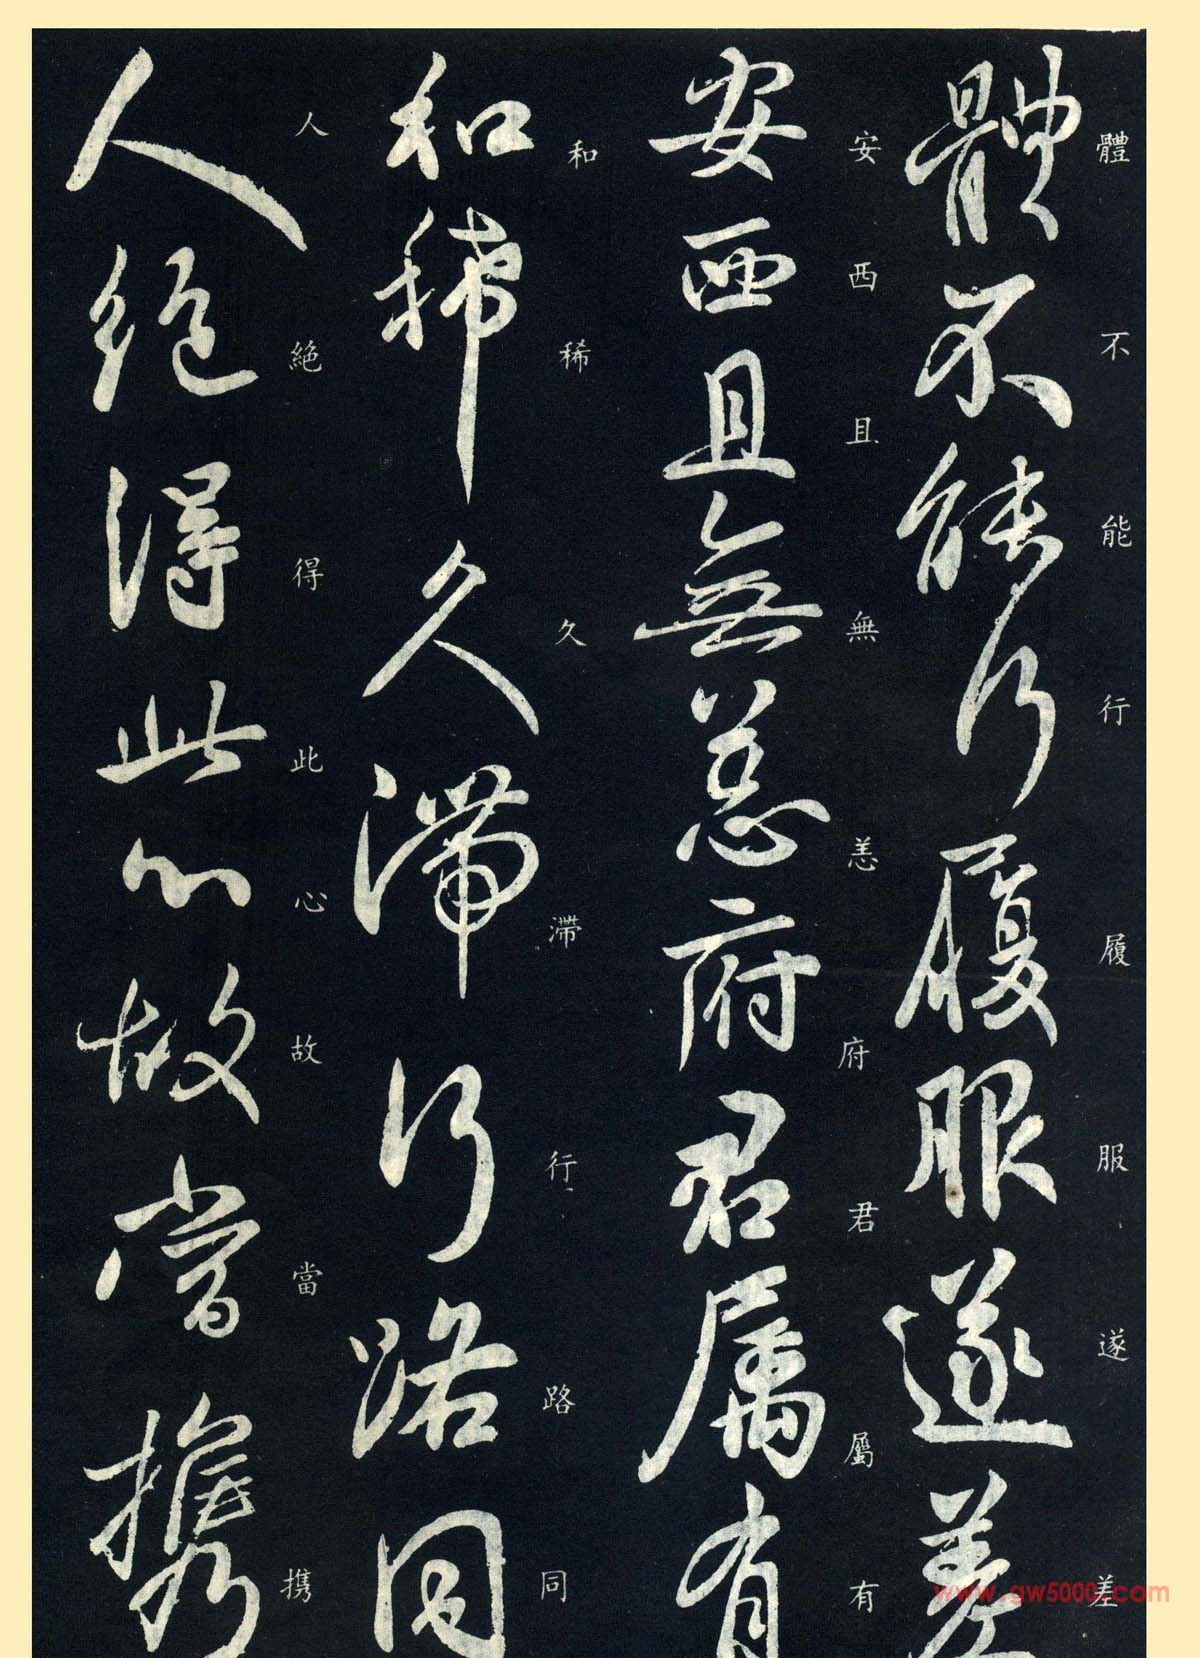 體不能行履服遂差
安西且無恙府君屬有
和稀久滯行路同
人絕得此心故當攜
體不能行履服遂差
安西且無恙府君屬有
和稀久滯行路同
人絕得此心故當携
www.gw5000.com